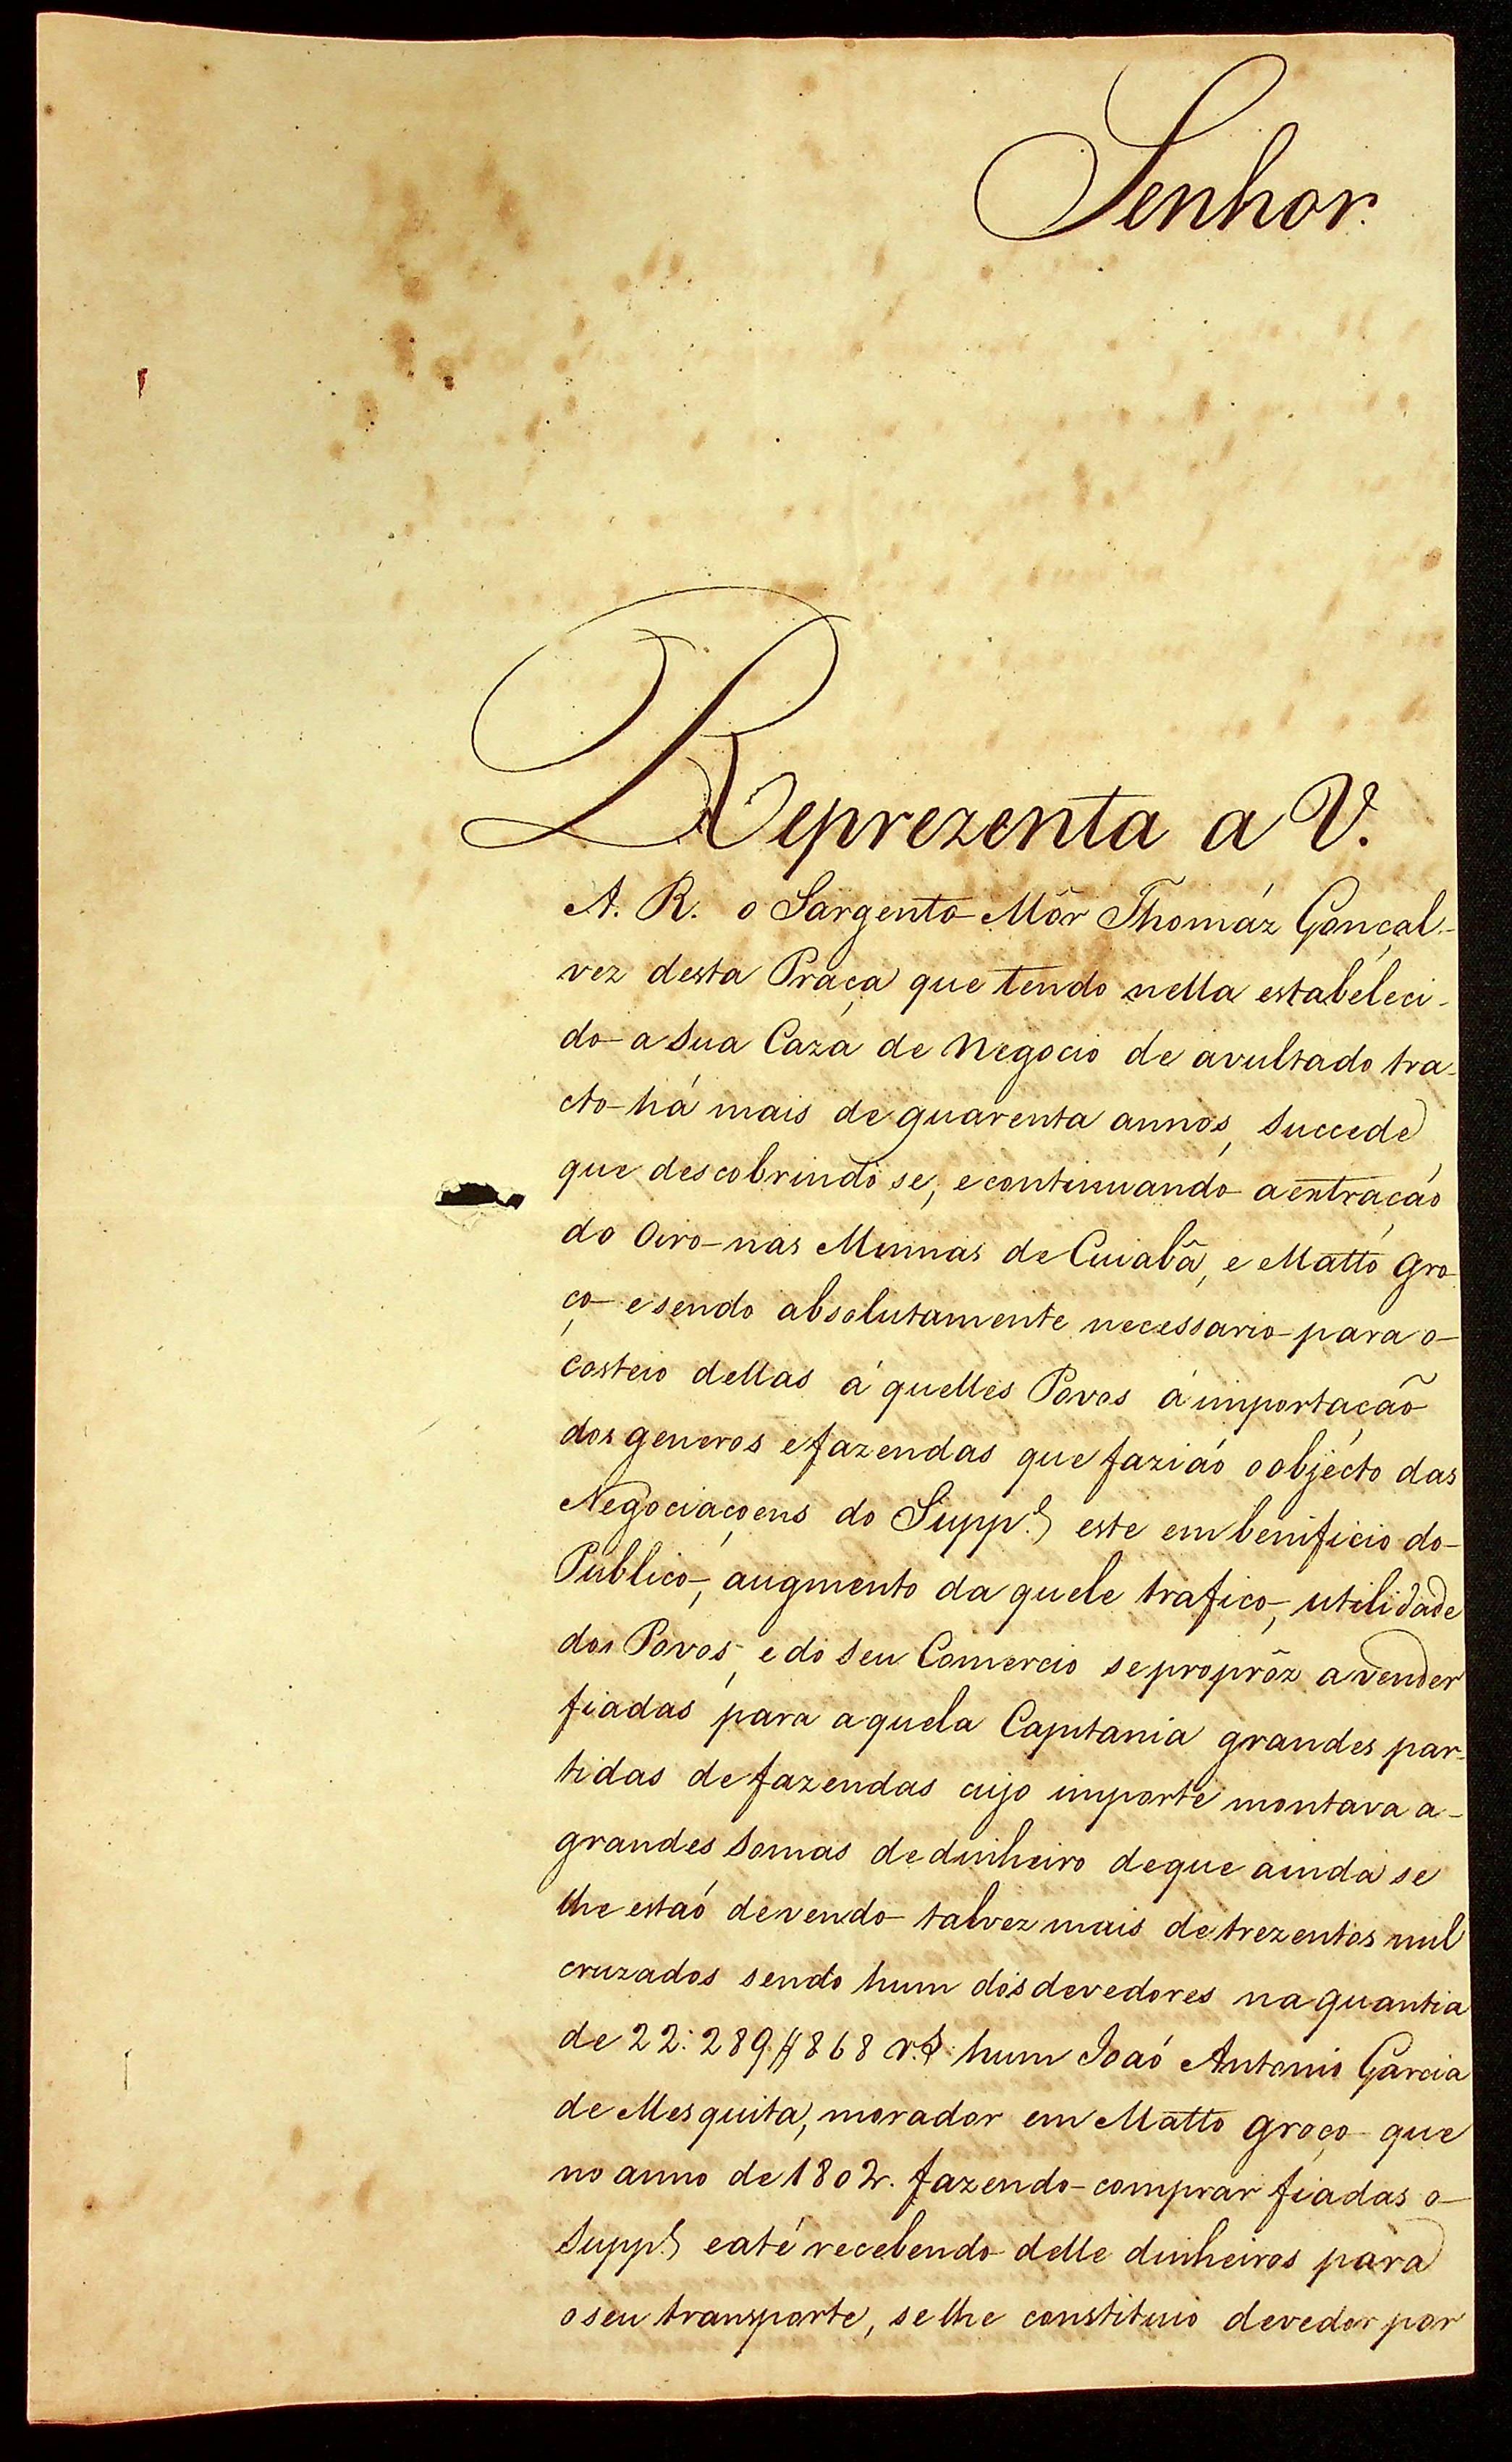 Senhor.
Reprezenta a V.
A. R. o Sargento Mór Thomáz Gonçal-
vez desta Praça que tendo nella estabeleci-
do a sua Caza de Negocio de avultado tra-
cto há mais de quarenta annos, succede
que descobrindo se, e continuando a extração
do Oiro nas Minnas de Cuiabá, e Matto Gro
ço e sendo absolutamente necessario para o
costeio dellas á quelles Povos a importação
dos generos e fazendas que fazião o objecto das
Negociaçoens do Supp.e este em benificio do
Publico, augmento da quele trafico, utilidade
dos Povos, e do seu Comercio se propôz a vender
fiadas para aquela Capitania grandes par-
tidas de fazendas cujo importe montava a
grandes somas de dinheiro de que ainda se
lhe estaó devendo talvez mais de trezentos mil
cruzados sendo hum dos devedores na quantia
de 22:289#868 r.s hum Joaó Antonio Garcia
de Mesquita, morador em Matto Groço que
no anno de 1802. fazendo comprar fiadas o
Supp.e e até recebendo delle dinheiros para
o seu transporte, se lhe constituio devedor por